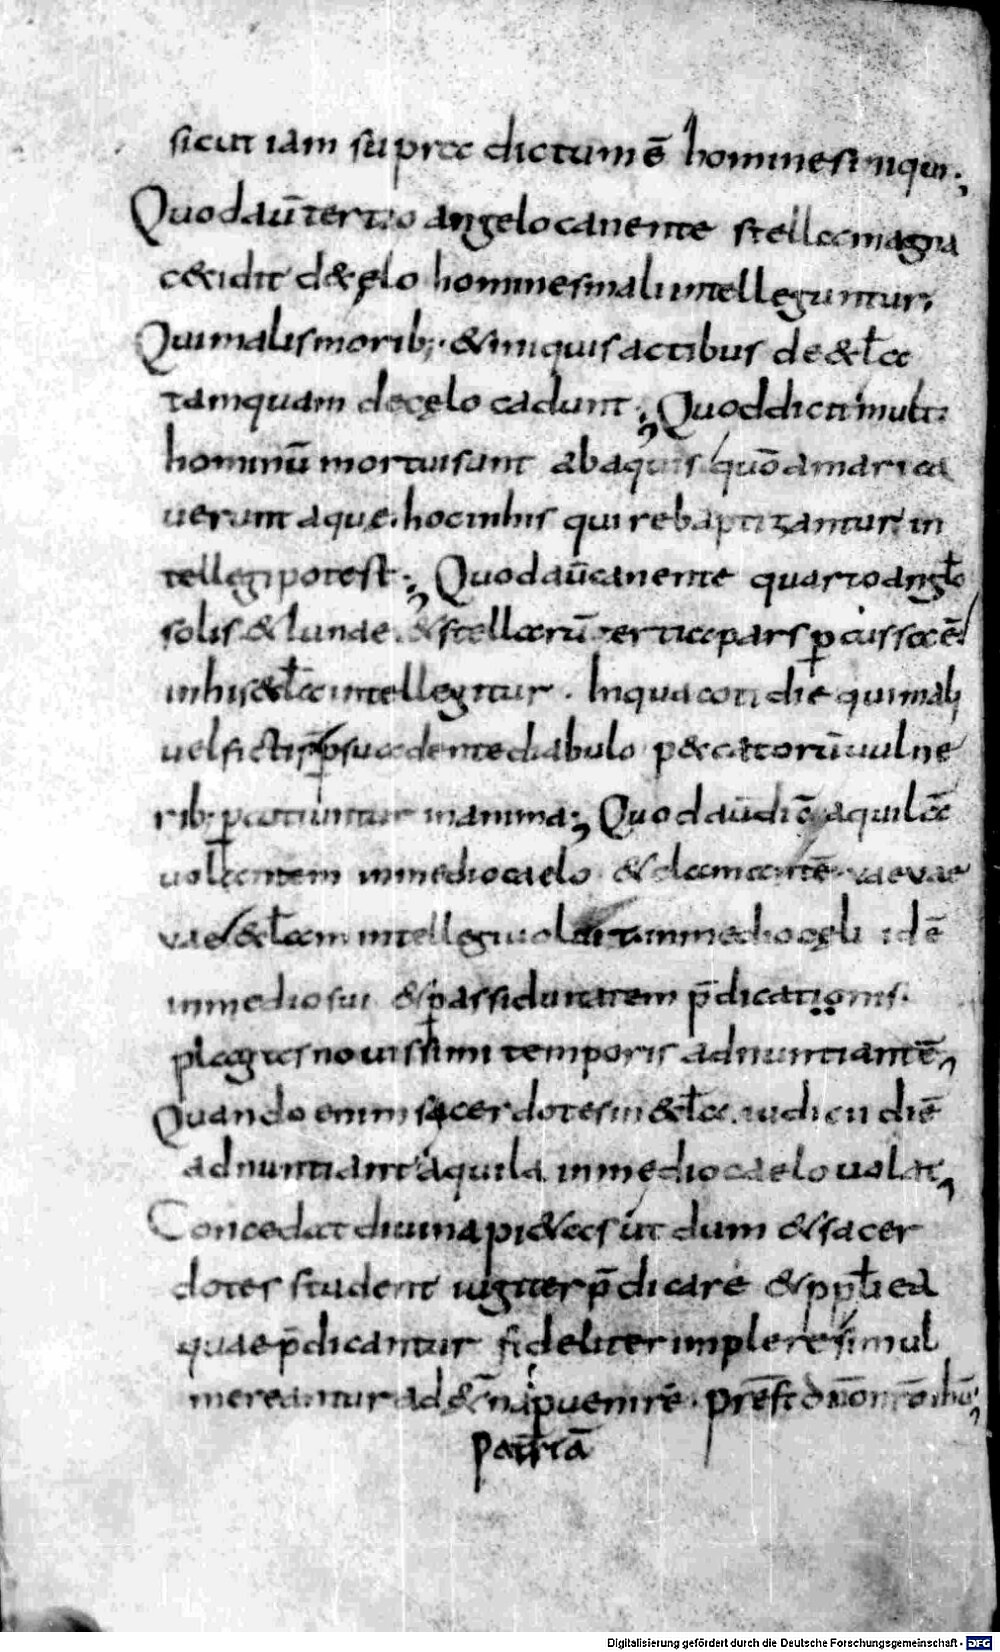 sicut iam supra dictum ē homines iniqui.;
Quod aūt tertio angelo canente stella magna
cecidit de cęlo homines mali intelleguntur;
Qui malis morib; & iniquis actibus de ęccła
tamquam de cęlo cadunt.; Quod dicit multi
hominū mortui sunt ab aquis quō amarica
uerunt aquę. hoc in his qui rebaptizantur in
tellegi potest.; Quod aūt canente quarto angło
solis & lunae. & stellarū tertia pars p̱cussa ē.
in his & ęccła intellegitur. In qua cotidie qui mali
uel ficti p̱suadente diabulo p&catorū uulne
rib; patiuntur in anima; Quod aūt dic̄ aquilā
uolantem in medio caelo & clamantē vae vae
vae & ęcclam intellegi uolantem in medio cęli id ē
in medio sui & p̱ assiduitatem p̄dicationis.
plagas nouissimi temporis adnuntiantē,
Quando enim sacerdotes in ęccła. iudicii diē
adnuntiant aquila in medio caelo uolat,
Concedat diuina pi&as ut dum & sacer
dotes student iugiter p̄dicare & pplī ea
quae p̄dicantur fideliter implere simul
mereantur ad &̄nā p̱uenire. prēst d n̄o
patriā
Digitalisierung gefördert durch die Deutsche Forschungsgemeinschaft - DFG